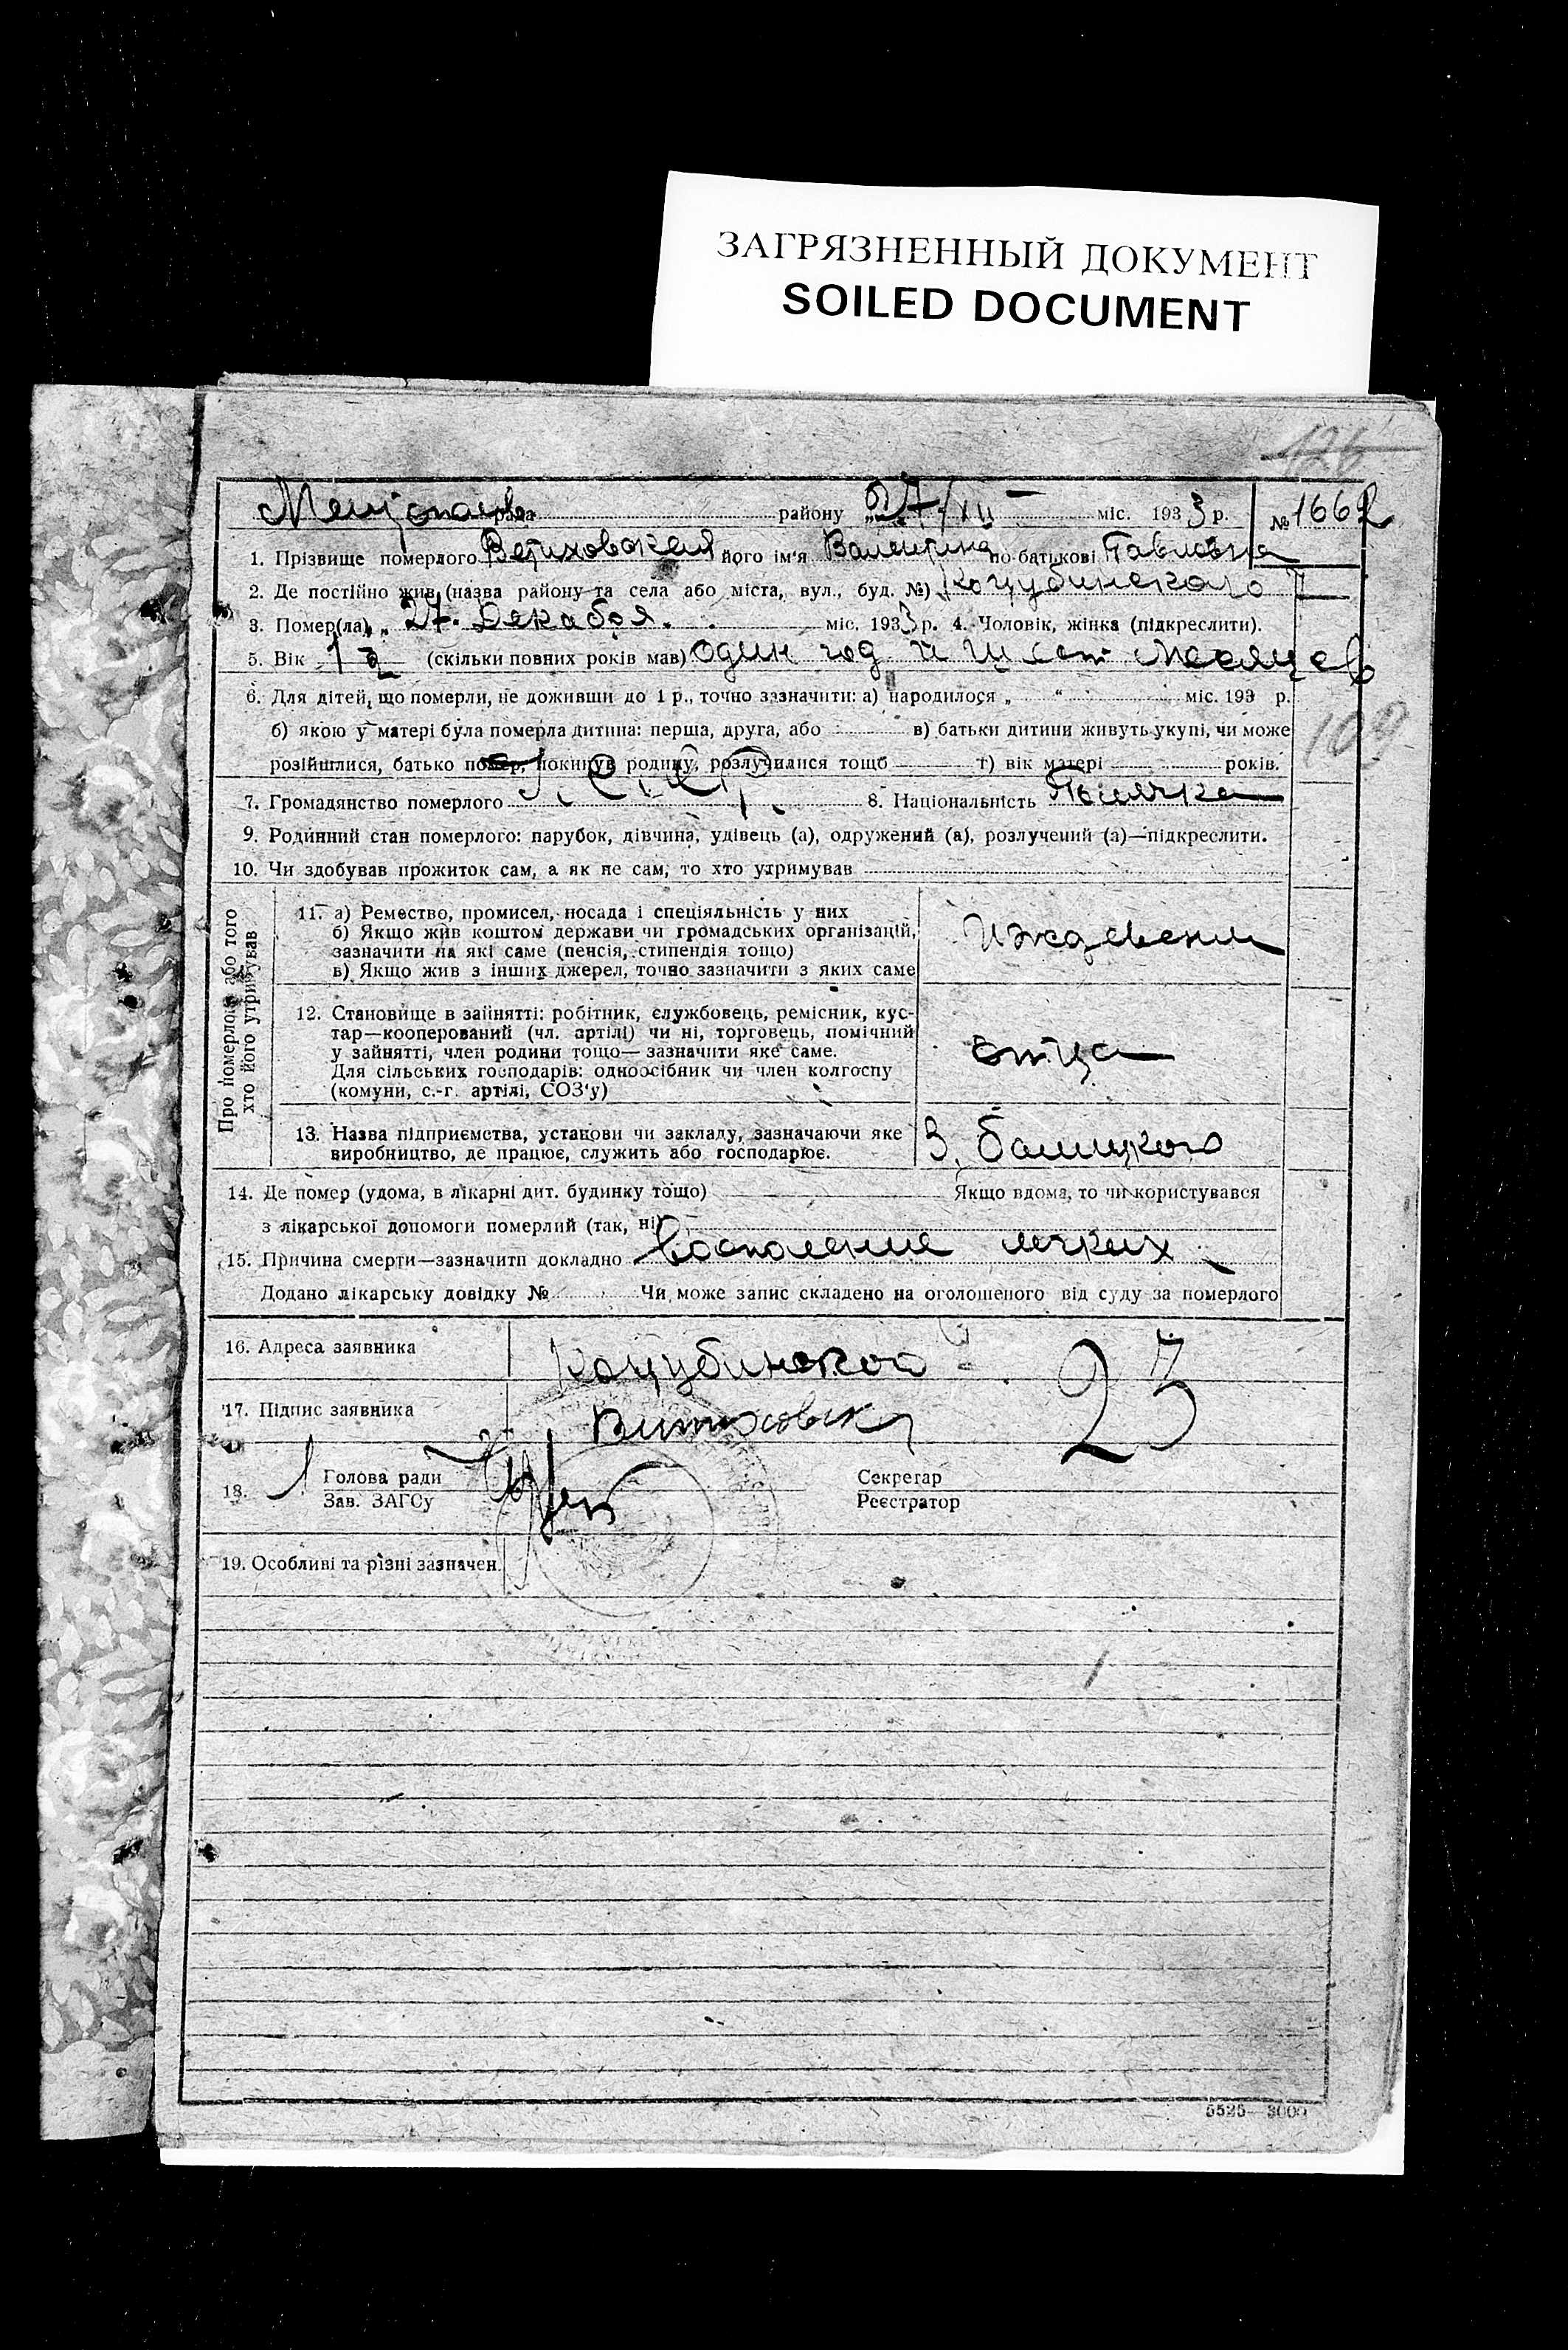 ЗАГРЯЗНЕННЫЙ ДОКУМЕНТ
SOILED DOCUMENT
126
рада району 27/XII міс. 1933 р. № 1662
1. Прізвище померлого його ім'я Валентина по-батькові Павловна
2. Де постійно жив (назва району та села або міста, вул., буд. №) Коцубинского 7
3. Помер(ла) „ 27. Декабря. міс. 1933 р. 4. Чоловік, жінка (підкреслити).
5. Вік 1 (скільки повних років мав) один год и шест месяцев
6. Для дітей, що померли, не доживши до 1 р., точно зазначити: а) народилося „ “ міс. 193 р.
109
б) якою у матері була померла дитина: перша, друга, або в) батьки дитини живуть укупі, чи може
розійшлися, батько помер, покинув родину, розлучилися тощо г) вік матері років.
7. Громадянство померлого 8. Національність
9. Родинний стан померлого: парубок, дівчина, удівець (а), одружений (а), розлучений (а)—підкреслити.
10. Чи здобував прожиток сам, а як не сам, то хто утримував
Про померлого або того хто його утримував
11. а) Ремество, промисел, посада і спеціяльність у них
б) Якщо жив коштом держави чи громадських організацій,
зазначити на які саме (пенсія, стипендія тощо)
в) Якщо жив з інших джерел, точно зазначити з яких саме
Иждевении
12. Становище в зайнятті: робітник, службовець, ремісник, кус-
тар—кооперований (чл. артілі) чи ні, торговець, помічний
у зайнятті, член родини тощо— зазначити яке саме.
Для сільських господарів: одноосібник чи член колгоспу
(комуни, с.-г. артілі, СОЗ'у)
отца
13. Назва підприємства, установи чи закладу, зазначаючи яке
виробництво, де працює, служить або господарює.
З. Балицкого
14. Де помер (удома, в лікарні дит. будинку тощо) Якщо вдома, то чи користувався
з лікарської допомоги померлий (так, ні)
15. Причина смерти—зазначити докладно Восполение легких
Додано лікарську довідку № Чи може запис складено на оголошеного від суду за померлого
16. Адреса заявника Коцубинской 23
17. Підпис заявника
18. Голова ради Секретар
Зав. ЗАГСу Реєстратор
19. Особливі та різні зазначен.
5525—3000